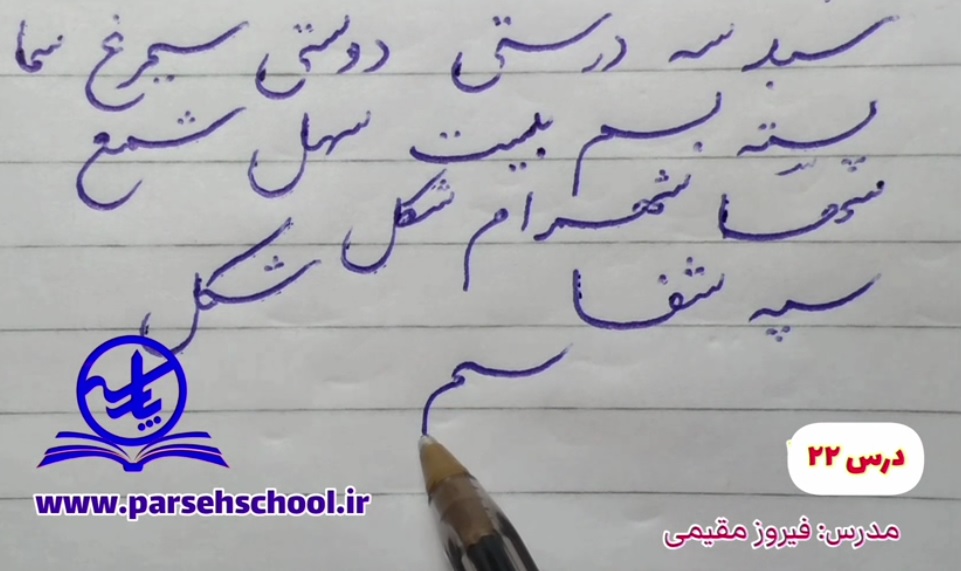 سبد سه درستی دوستی سیمرغ سما
پسته بسم بلیت سهل شمع
شهرام شکل
سپه شفا شکل
سم
پارسه
درس ۲۲
www.parsehschool.ir
مدرس: فیروز مقیمی